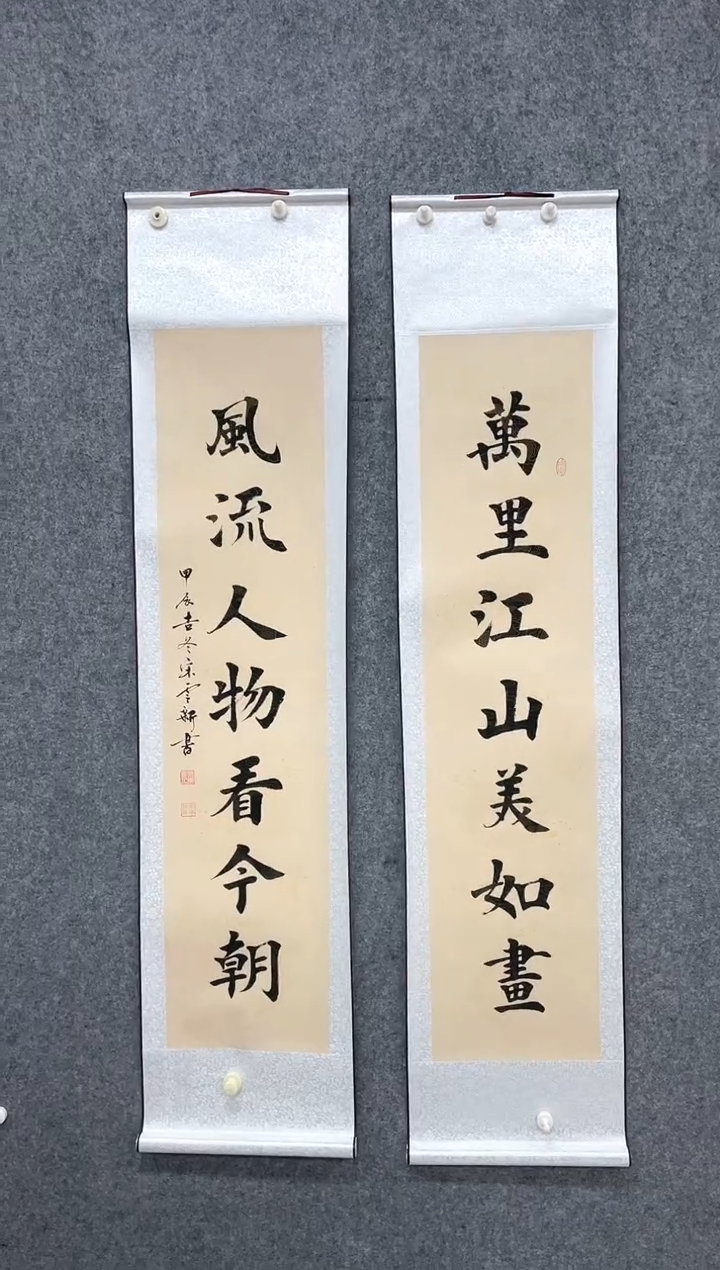 萬里江山美如畫
風流人物看今朝
甲辰吉冬宋雲新書